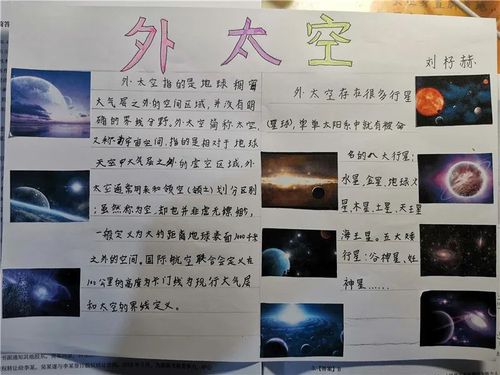 外太空
刘籽赫
外太空指的是地球稠密
大气层之外的空间区域,并没有明
确的界线分野。外太空简称太空,
又称宇宙空间,指的是相对于地球
天空中大气层之外的虚空区域,外
太空通常用来和领空(领土)划分区别
;虽然称为空,却也并非虚无缥缈,
一般定义为大约距离地球表面1000千米
之外的空间。国际航空联合会定义在
100公里的高度为卡门线为现行大气层
和太空的界线定义。
外太空存在很多行星
(星球),单单太阳系中就有被命
名的八大行星:
水星、金星、地球、火
星、木星、土星、天王星
海王星。五大矮
行星:谷神星、
神星……